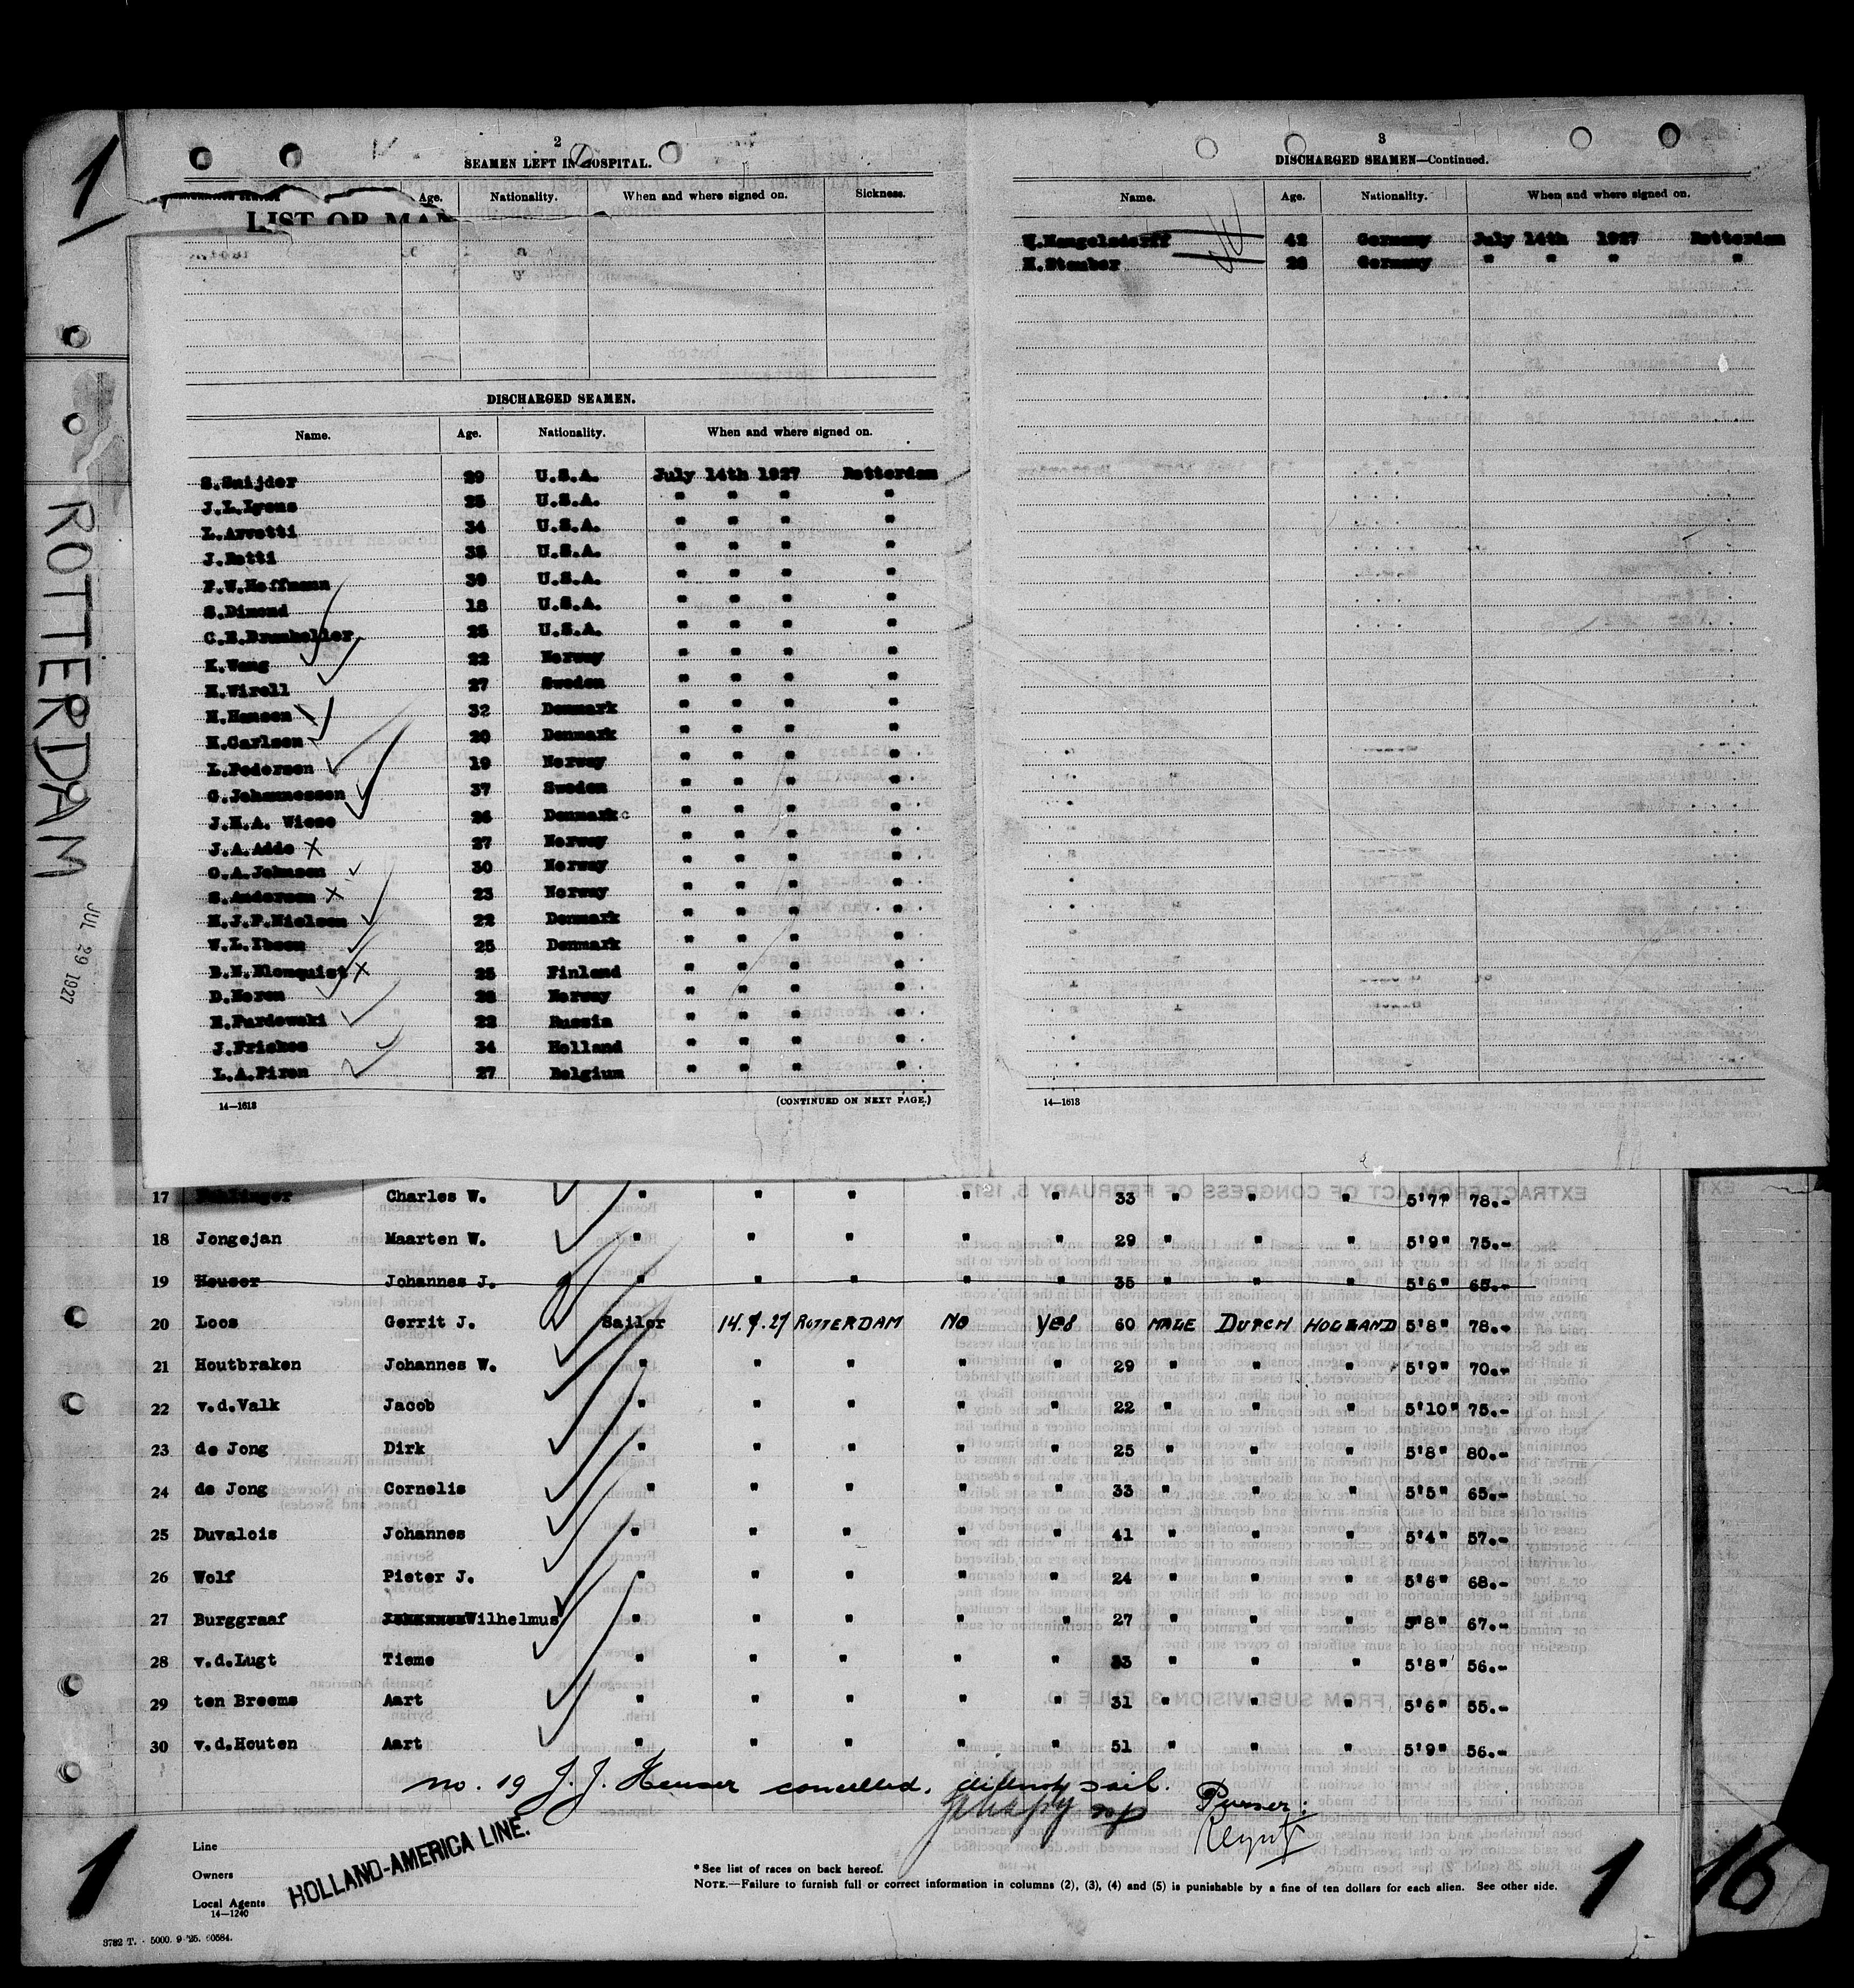 1
ROTTERDAM
JUL 29 1927
2
SEAMEN LEFT IN HOSPITAL.
Age. Nationality. When and where signed on. Sickness.
LIST OR MAN
DISCHARGED SEAMEN.
Name. Age. Nationality. When and where signed on.
S.Snijder 29 U.S.A. July 14th 1927 Rotterdam
J.L.Lyons 25 U.S.A. " " " "
L.Arvetti 34 U.S.A. " " " "
J.Ratti 38 U.S.A. " " " "
F.W.Hoffmann 39 U.S.A. " " " "
S.Dimond 18 U.S.A. " " " "
C.E.Brunheller 25 U.S.A. " " " "
K.Wang 22 Norway " " " "
H.Wirell 27 Sweden " " " "
H.Hansen 32 Denmark " " " "
K.Carlsen 20 Denmark " " " "
L.Pedersen 19 Norway " " " "
G.Johannessen 37 Sweden " " " "
J.H.A. Wiese 26 Denmark " " " "
J.A.Adde X 27 Norway " " " "
O.A.Johnsen 30 Norway " " " "
S.Andersen X 23 Norway " " " "
H.J.P.Nielsen 22 Denmark " " " "
V.L.Ibsen 25 Denmark " " " "
B.N.Blomquist X 25 Finland " " " "
D.Noren Norway " " " "
22 Russia " " " "
J.Frishes 34 Holland " " " "
L.A.Piron 27 Belgium " " " "
14—1613 (CONTINUED ON NEXT PAGE.)
3
DISCHARGED SEAMEN—Continued.
Name. Age. Nationality. When and where signed on.
W.Mangelsdorff 42 Germany July 14th 1927 Rotterdam
H.Stamber 28 Germany " " " "
14—1613
17 Charles W. " " " " " 33 " " " 5'7" 78.-
18 Jongejan Maarten W. " " " " " 29 " " " 5'9" 75.-
19 Heuser Johannes J. " " " " " 35 " " " 5'6" 65.-
20 Loos Gerrit J. Sailor 14.7.27 ROTTERDAM No yes 60 MALE DUTCH HOLLAND 5'8" 78.-
21 Houtbraken Johannes W. " " " " " 29 " " " 5'9" 70.-
22 v.d.Valk Jacob " " " " " 22 " " " 5'10" 75.-
23 de Jong Dirk " " " " " 25 " " " 5'8" 80.-
24 de Jong Cornelis " " " " " 33 " " " 5'5" 65.-
25 Duvalois Johannes " " " " " 41 " " " 5'4" 57.-
26 Wolf Pieter J. " " " " " 24 " " " 5'6" 68.-
27 Burggraaf Wilhelmus " " " " " 27 " " " 5'8" 67.-
28 v.d.Lugt Tieme " " " " " 33 " " " 5'8" 56.-
29 ten Breems Aart " " " " " 31 " " " 5'6" 55.-
30 v.d.Houten Aart " " " " " 51 " " " 5'9" 56.-
no. 19 J.J. Heuser cancelled, did not sail.
Purser:
Line
Owners
Local Agents
HOLLAND-AMERICA LINE.
14—1240
* See list of races on back hereof.
NOTE.—Failure to furnish full or correct information in columns (2), (3), (4) and (5) is punishable by a fine of ten dollars for each alien. See other side.
3782 T. - 5000. 9-'25. 60584.
1
1
16